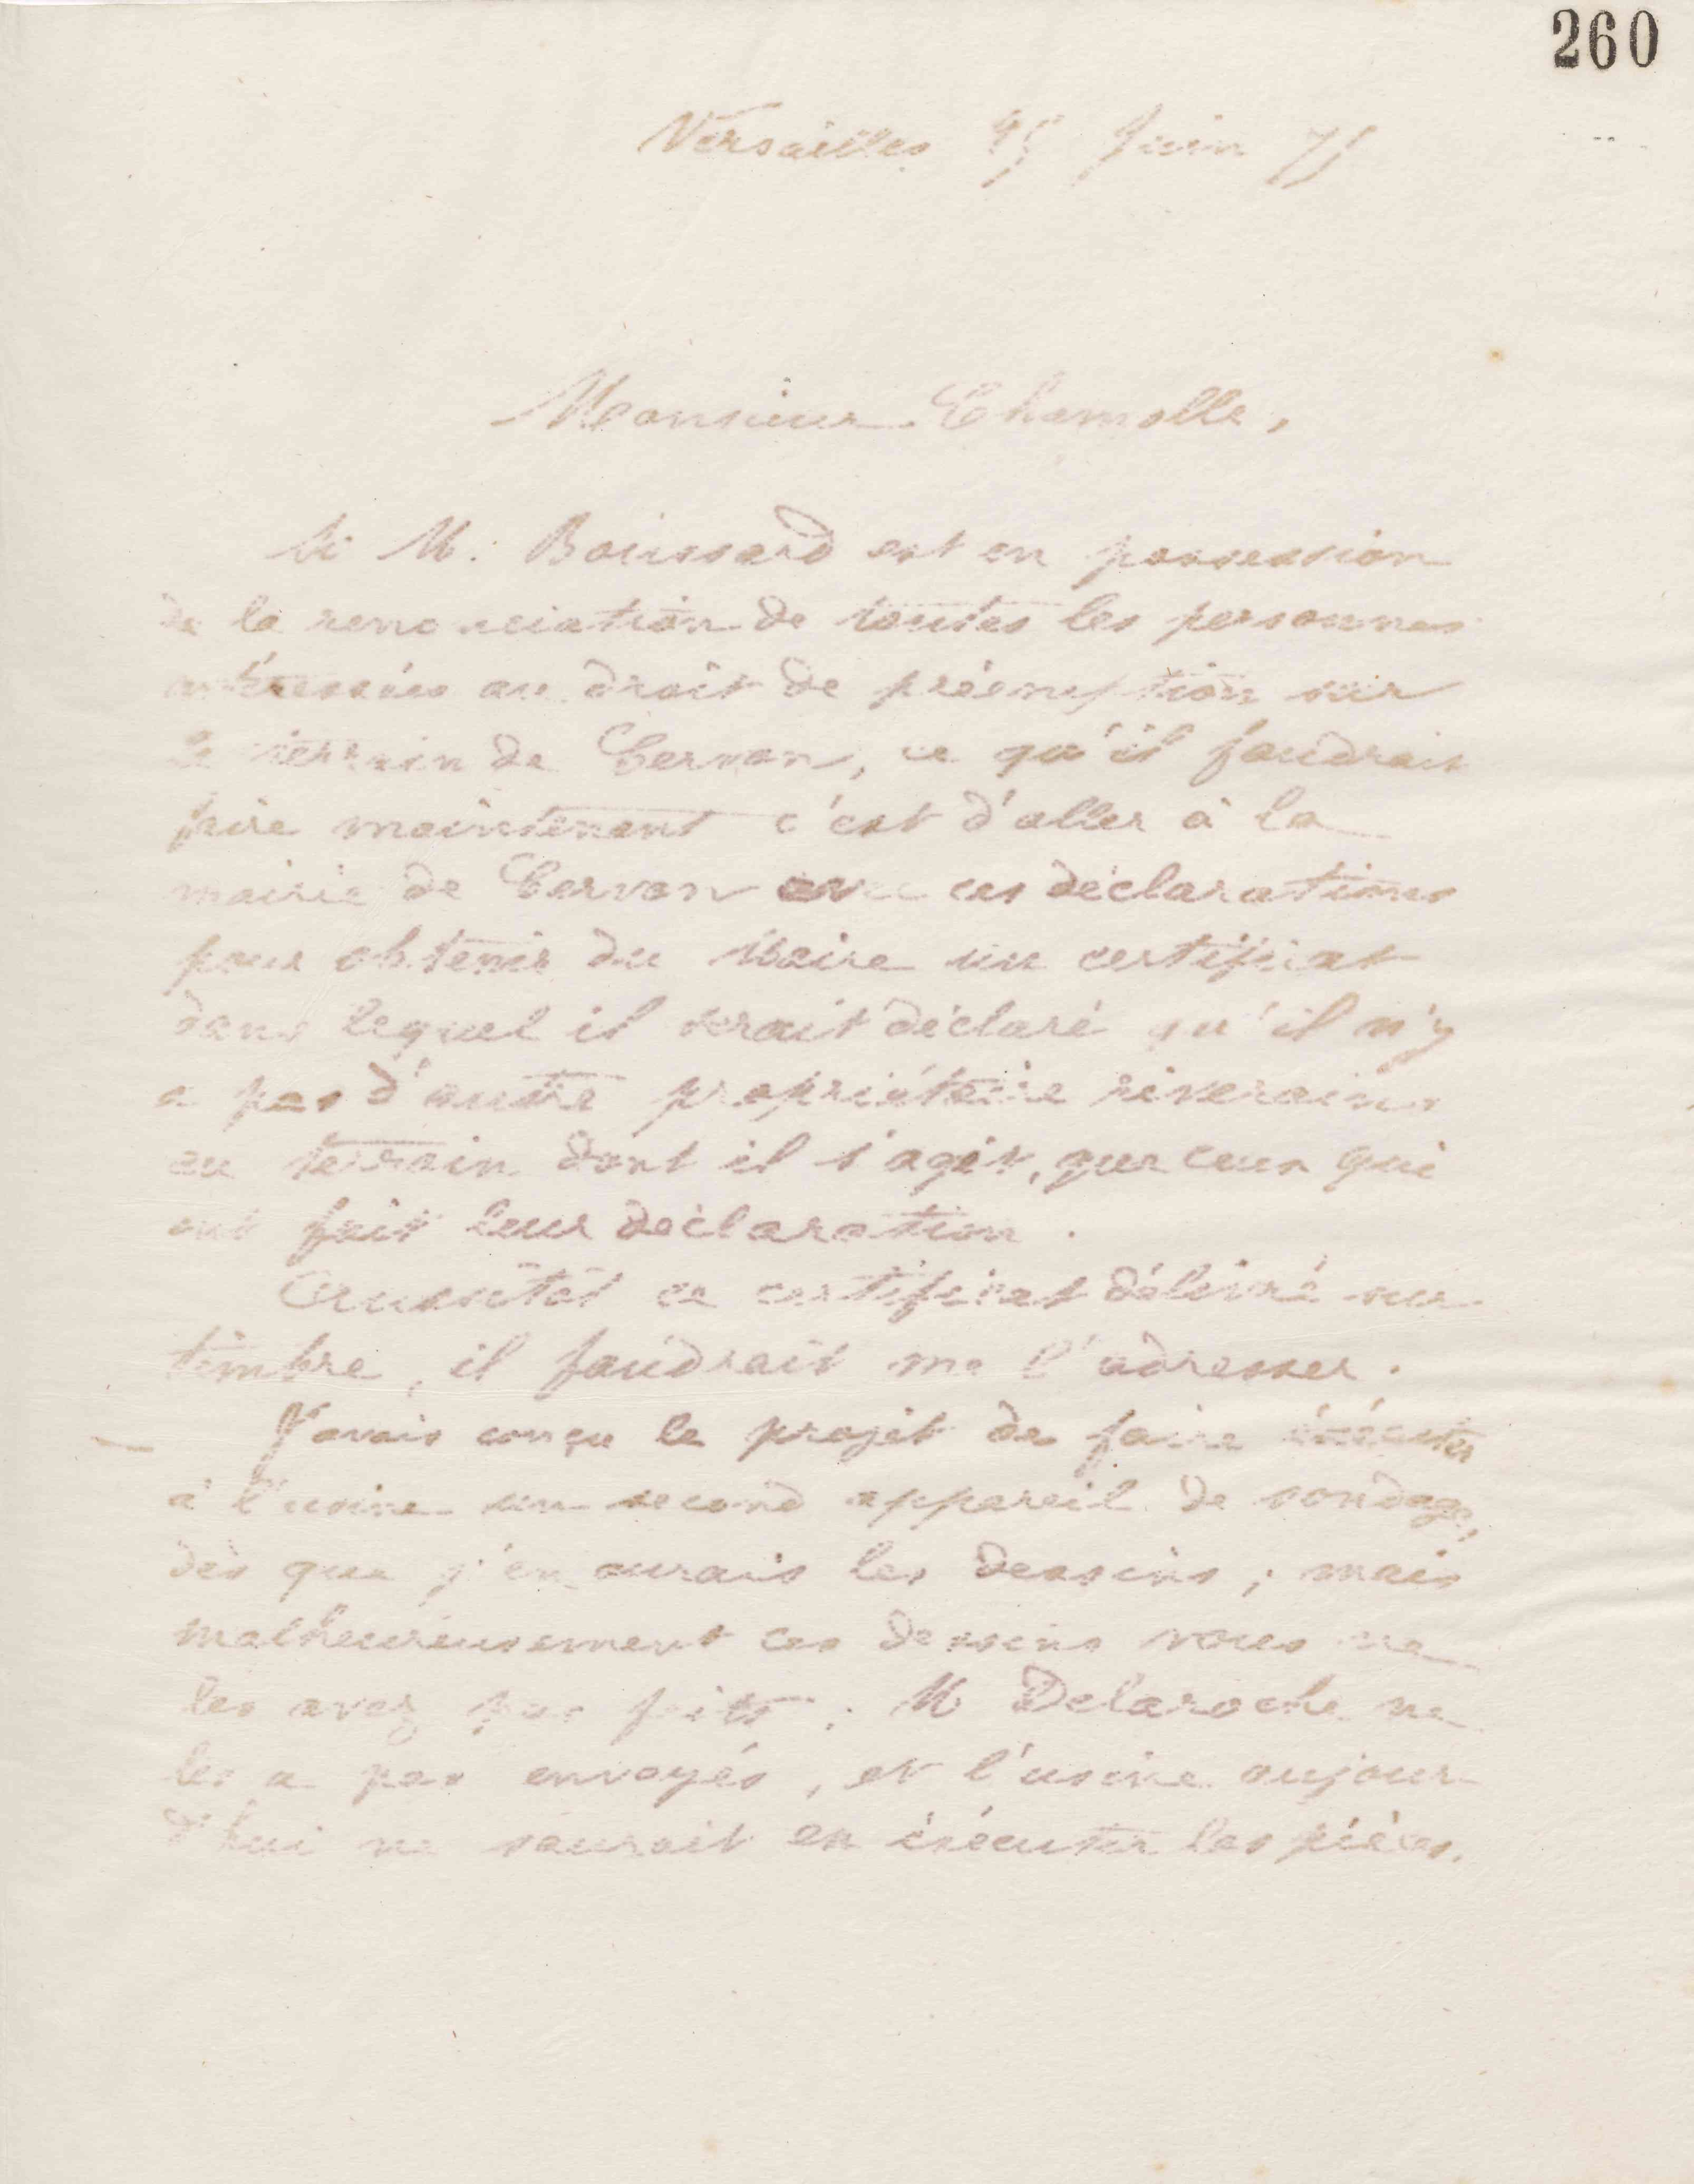 260
Versailles 25 Juin 75
Monsieur Chamolle,
Si M. Boussard est en possession
de la renonciation de toutes les personnes
intéressées au droit de préemption sur
le terrain de Cervon, ce qu'il faudrait
faire maintenant c'est d'aller à la
mairie de Cervon avec ces déclarations
pour obtenir du Maire un certificat
dans lequel il serait déclaré qu'il n'y
a pas d'autre propriétaire riverains
au terrain dont il s'agit, que ceux qui
ont fait leur déclaration.
Aussitôt ce certificat délivré sur
timbre, il faudrait me l'adresser.
J'avais conçu le projet de faire éxécuter
à l'usine un second appareil de sondage,
dès que j'en aurais les dessins; mais
malheureusement ces dessins vous ne
les avez pas faits; M Delaroche ne
les a pas envoyés, et l'usine aujour-
d'hui ne saurait en éxécuter les pièces.